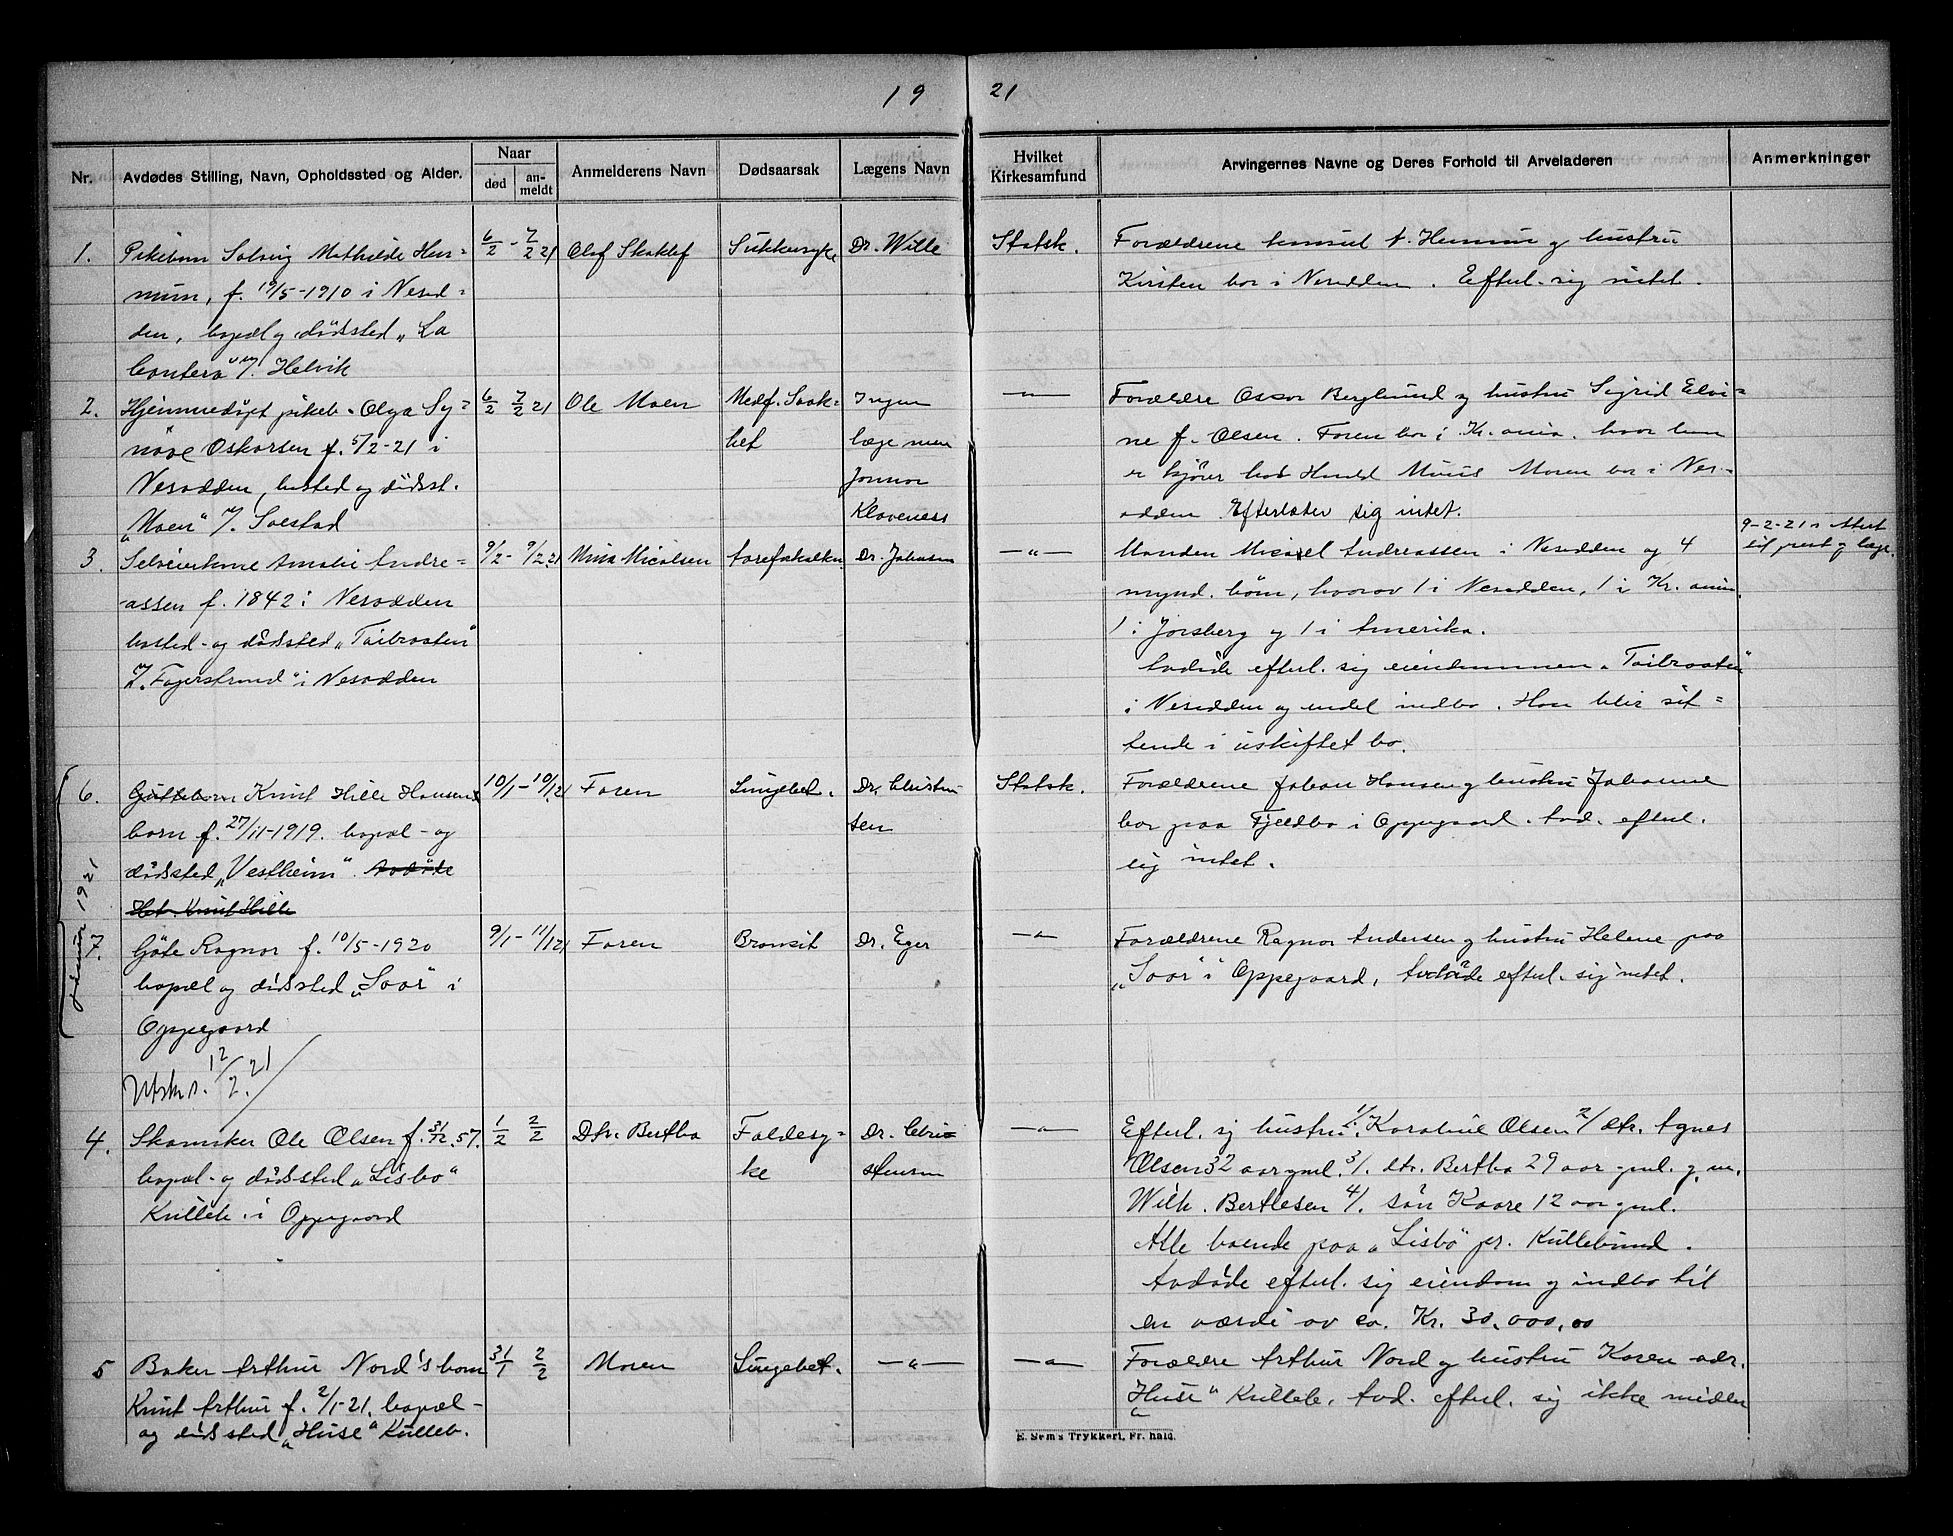 19 21
Nr. Avdødes Stilling, Navn, Opholdssted og Alder. Naar død an-meldt Anmelderens Navn Dødsaarsak Lægens Navn Hvilket Kirkesamfund Arvingernes Navne og Deres Forhold til Arveladeren Anmerkninger
1. Pikebarn Solveig Mathilde Hen= 6/2 - 7/2 21 Olaf Skoklef Sukkersyke Dr. Wille Statsk. Forældrene N. Hennum og hustru
num, f. 19/5-1910 i Nesod= Kirsten bor i Nesodden. Efterl. sig intet.
den, bopæl og dødssted „La
"/. Helvik
2. Hjemmedøpt pikeb. Olga Sy= 6/2 7/2 21 Ole Moen Medf. Svak= Ingen —„— Forældre Oscar Berglund og hustru Sigrid Elvi=
nøve Oskarsen f. 5/2-21 i het læge men ne f. Olsen. Faren bor i Kr.ania. hvor han
Nesodden, bosted og dødsst. Jormor er kjører hos Harald Moren bor i Nes=
„Moen" /. Solstad Klaveness odden. Efterlater sig intet.
3. Amalie Andre= 9/2 - 9/2 21 Mina Micalsen Aareforkalkn Dr. Johansen —„— Manden Micael Andreassen i Nesodden og 4 9-2-21 Attest
assen f. 1842 i Nesodden mynd. børn, hvorav 1 i Nesodden, 1 i Kr.ania, til prest og læge.
bosted- og dødssted „Toibraaten" 1 i og 1 i Amerika.
/. Fagerstrand" i Nesodden Avdøde efterl. sig eiendommen „Toibraaten"
i Nesodden og endel indbo. Han blir sit=
tende i uskiftet bo.
Januar 1921
6. Guttebarn Knut Hille Hansens 10/1 - 10/1 21 Faren Lungebet. Dr. Christen Statsk. Forældrene Johan Hansen og hustru Johanne
barn f. 27/11-1919. bopæl- og sen bor paa Fjeldbo i Oppegaard. Avd. efterl.
dødssted „Vestheim". Avdøde sig intet.
Het. Knut Hille
7. Gøte Ragnor f. 10/5-1920 9/1 - 11/1 21 Faren Bronkit Dr. Eger —„— Forældrene Ragnar Andersen og hustru Helene paa
bopæl og dødssted „Soar" i „Soar" i Oppegaard, Avdøde efterl. sig intet.
Oppegaard
Utskr. 12/2. 21
4. Skomaker Ole Olsen f. 31/12. 57. 1/2 2/2 Dtr. Bertha Faldesy= Dr. Chris —„— Efterl. sig hustru. 1/. Karoline Olsen 2/ dtr. Agnes
bopæl- og dødssted „Lisbo" ke stensen Olsen 32 aar gml. 3/. dtr. Bertha 29 aar gml. g. m.
Kulleb. i Oppegaard Wilh. Bertlesen 4/. søn Kaare 12 aar gml.
Alle boende paa „Lisbo" pr. Kullebund.
Avdøde efterl. sig eiendom og indbo til
en værdi av ca. Kr. 30.000,00
5 Baker Arthur Nord's barn 31/1 2/2 Moren Lungebet. —„— —„— Forældre Arthur Nord og hustru Karen adr.
Knut Arthur f. 2/1-21. bopæl- „Huse" Kulleb. Avd. efterl. sig ikke midler
og dødssted „Huse" Kulleb.
E. Sem's Trykkeri, Fr.hald.